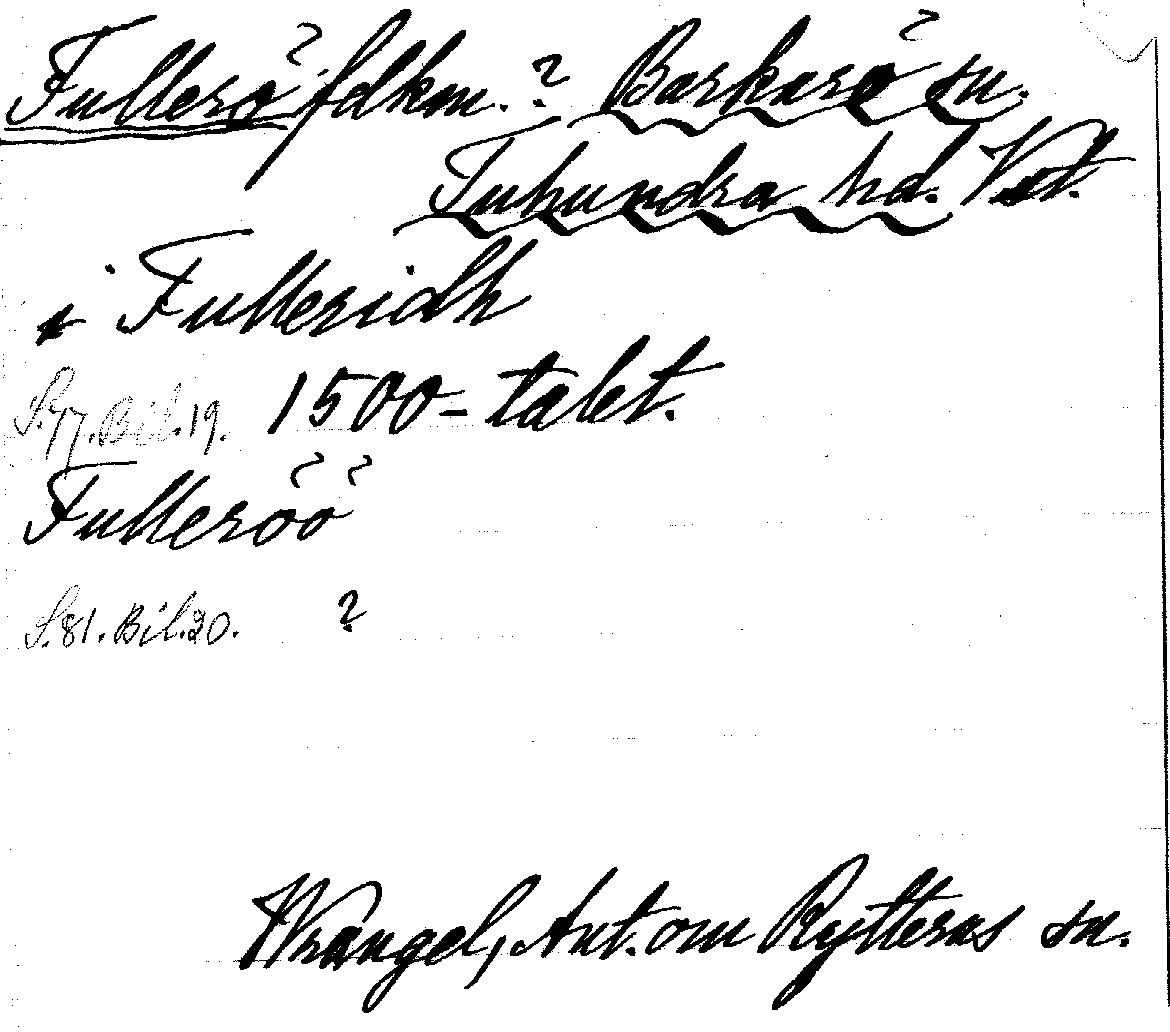 Fullerö fdkm.? Barkarö sn.
Tuhundra hd. Vstm.
i Fulleridh
S.77.Bil.19. 1500-talet.
Fulleröö
S.81.Bil.20. ?
Wrangel, Ant. om Rytterns sn.